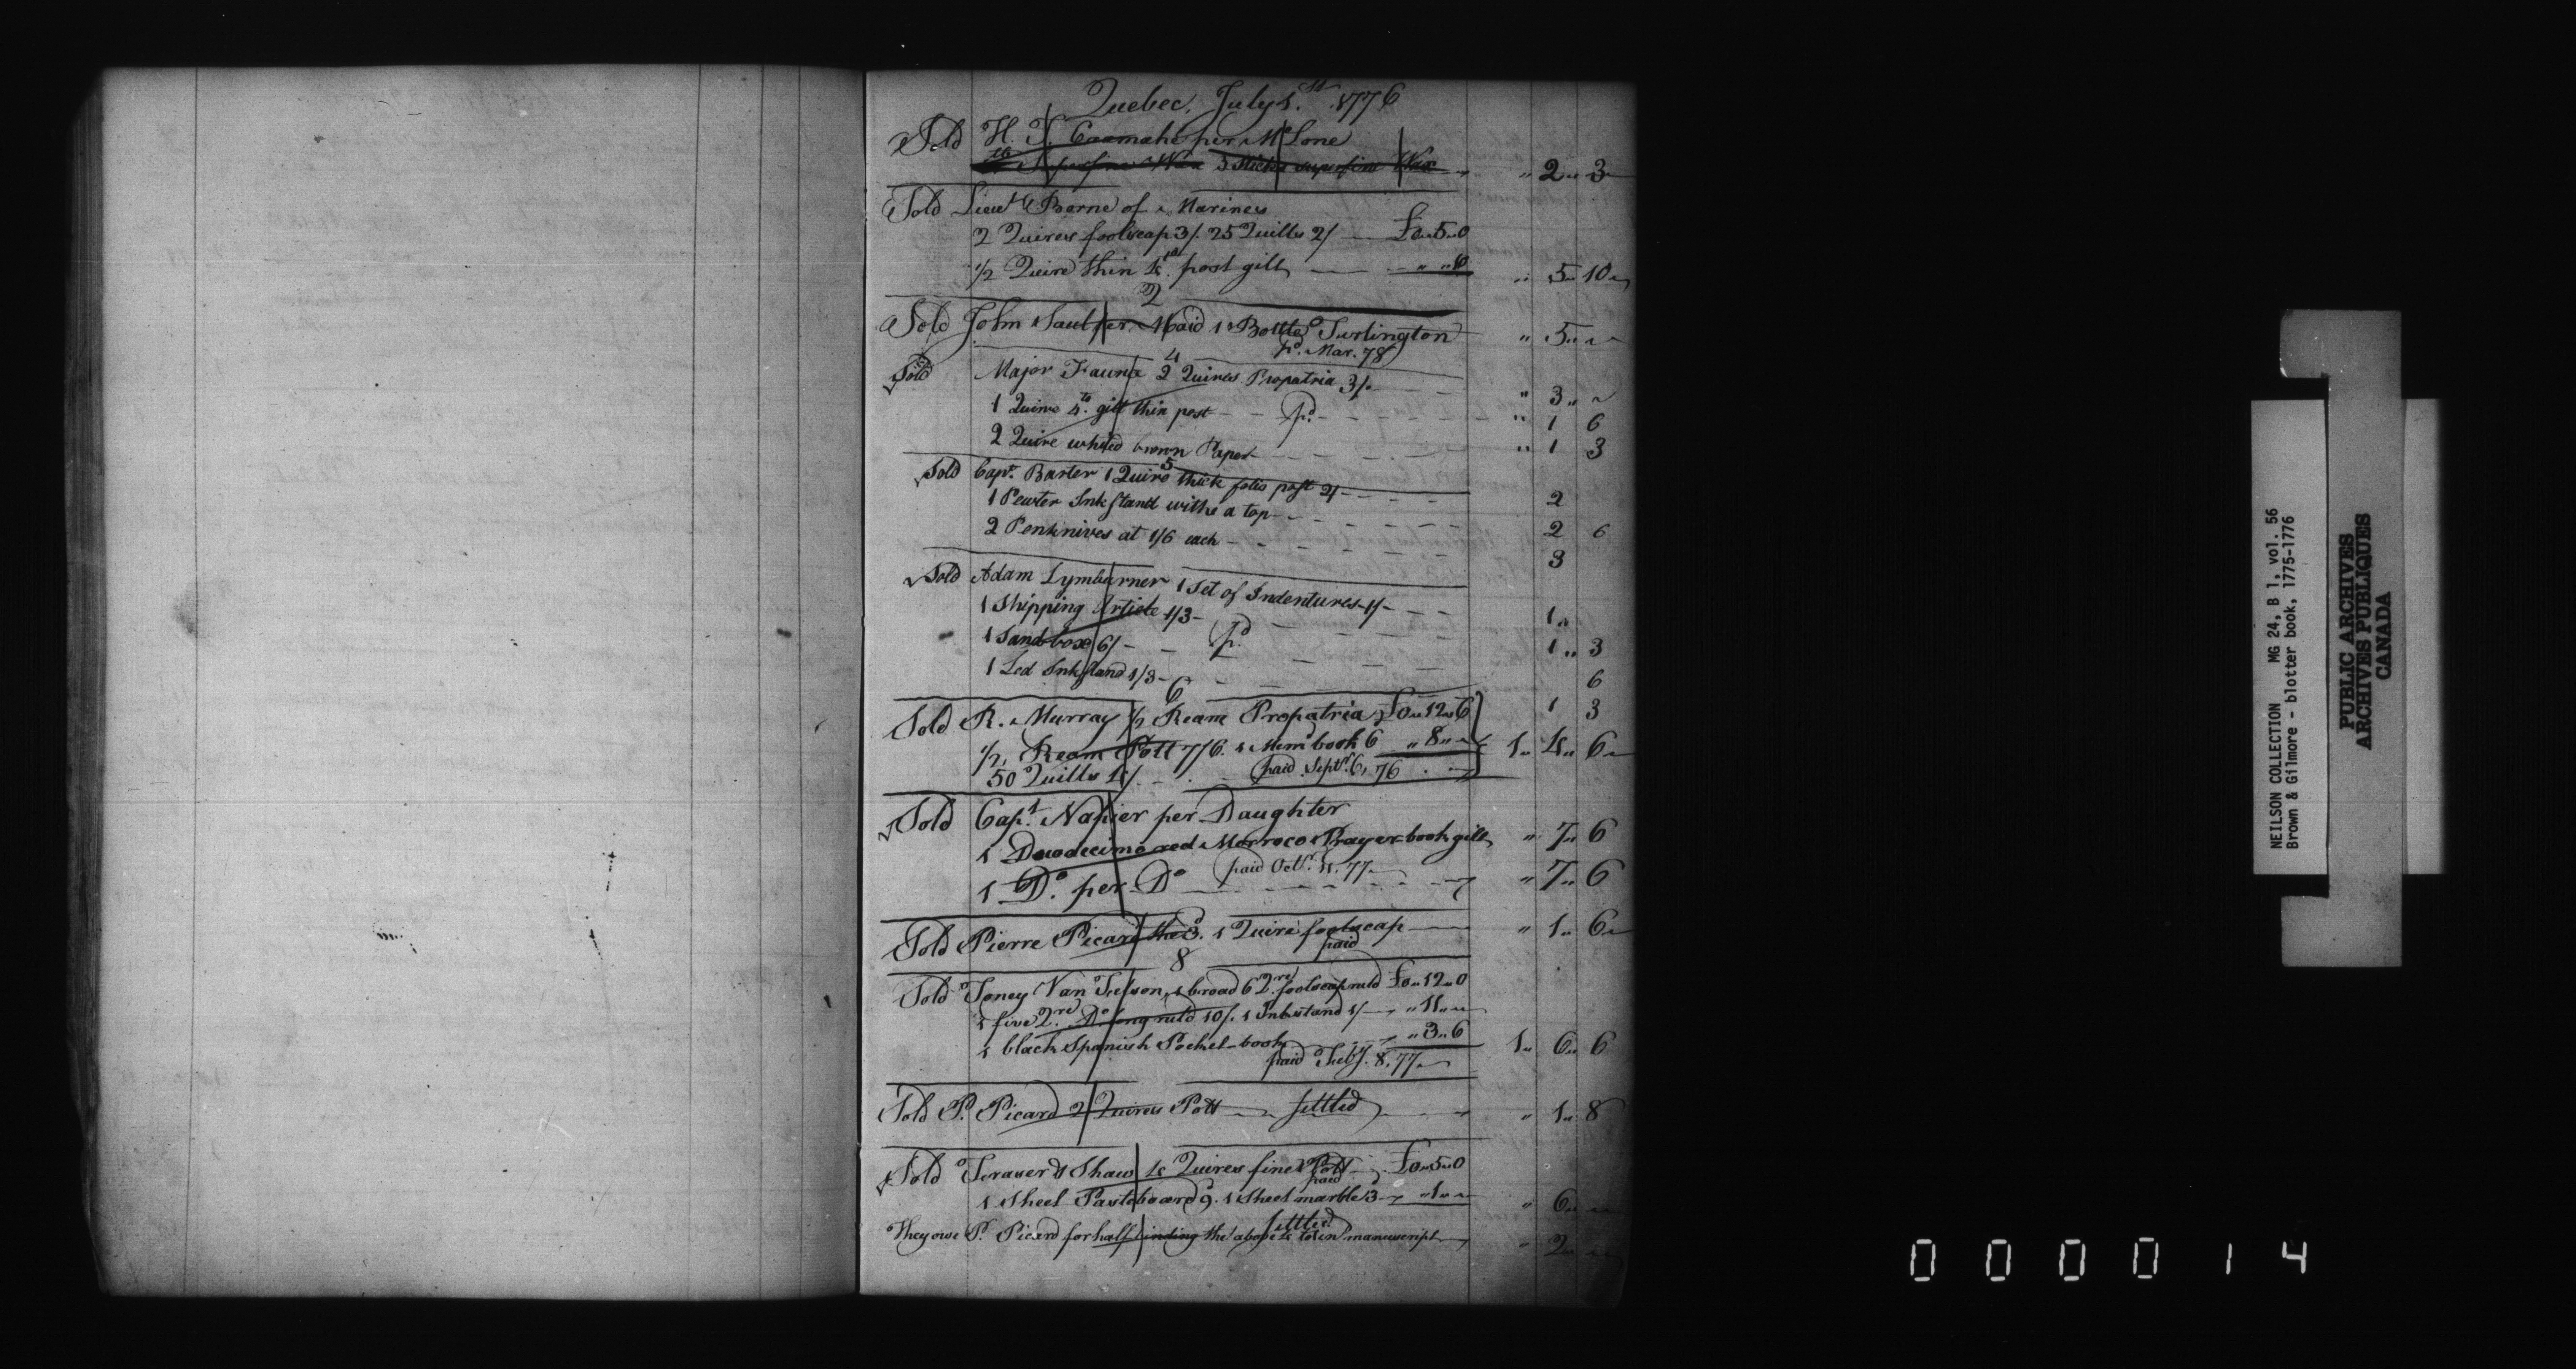 Quebec, July 1.st 1776
Sold H. T. Cramahe per Mc Lone
3 Sticks superfine Wax " 2 " 3
Sold Lieut. Borne of Marines
2 Quires foolscap 3/. 25 Quills 2/ £0 " 5 " 0
1/2 Quire thin 4to post gilt " 5 " 10
2
Sold John Saul per Maid 1 Bottle Turlington " 5 "
pd. Mar. 78
4
Sold Major Faune 2 Quires Propatria 3/. " 3 "
1 Quire 4to. gilt thin post pd. " 1 6
2 Quire whited brown Paper " 1 3
5
Sold Capt. Barter 1 Quire thick folio post 2/ 2
1 Pewter Ink Stand withe a top 2 6
2 Penknives at 1/6 each 3
Sold Adam Lymburner 1 Set of Indentures 1/ 1 "
1 Shipping Article 1/3 1 " 3
1 Sand box 6/ pd. 6
1 Led Ink Stand 1/3 1 3
6
Sold R. Murray 1/2 Ream Propatria £0 " 12 " 6
1/2 Ream Pott 7/6. 1 Memm. book 6 " 8 " 1 " 4 " 6
50 Quills 4/ paid Septr. 6, 76
Sold Capt. Napier per Daughter
1 Duodecimo red Morroco Prayer-book gilt " 7 " 6
1 Do. per Do paid Octr. 4. 77 " 7 " 6
Sold Pierre Picard the 3. 1 Quire foolscap " 1 " 6
paid
8
Sold Toney Van Felson, 1 broad 6 Qre foolscap ruld £0 " 12 " 0
1 five Qre. Do long ruld 10/. 1 Inkstand 1/ " 11 "
1 black Spanish Pocket-book " 3 " 6 1 " 6 " 6
paid Feby. 8, 77
Sold P. Picard 2 Quires Pott settled " 1 " 8
Sold Fraser & Shaw 4 Quires fine Pott £0 " 5 " 0
paid
1 Sheet Pasteboard 9. 1 Sheet marble 3 " 1 " " 6 "
settled
They owe P. Picard for half binding the above 4 in manuscript " 2 "
NEILSON COLLECTION MG 24, B 1, vol. 56
Brown & Gilmore - blotter book, 1775-1776
PUBLIC ARCHIVES
ARCHIVES PUBLIQUES
CANADA
000014